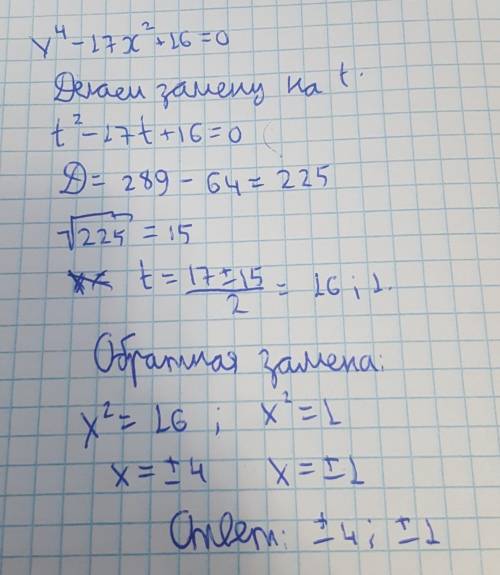 x⁴ - 17x² + 16 = 0
Делаем замену на t.
t² - 17t + 16 = 0
D = 289 - 64 = 225
√225 = 15
t = (17 ± 15)/2 = 16 ; 1.
Обратная замена:
x² = 16 ; x² = 1
x = ±4 x = ±1
Ответ: ±4; ±1